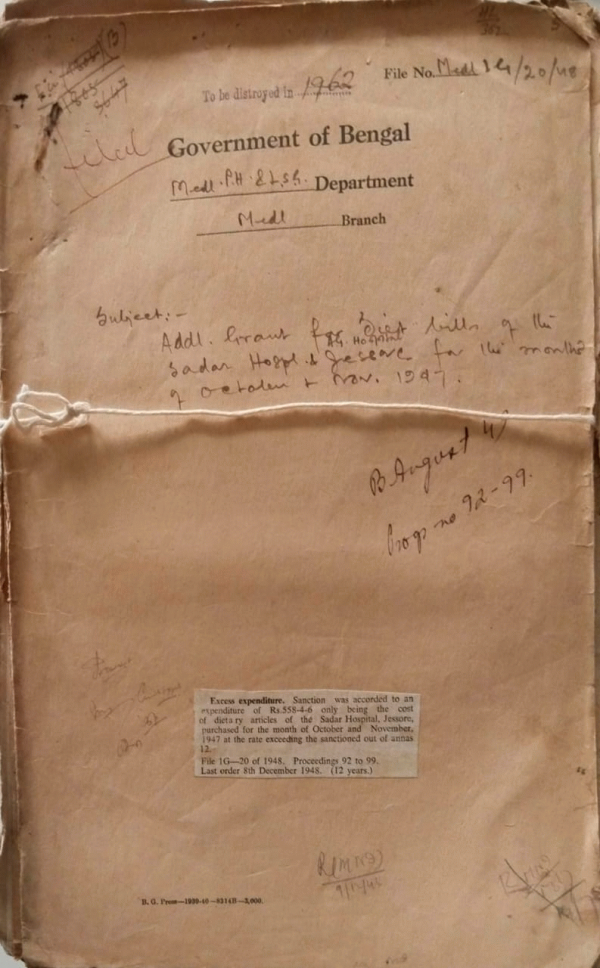 File No. Medl 1G/20/48
To be distroyed in 1962
filed
Government of Bengal
Medl. P.H. & L.S.G. Department
Medl Branch
Subject:-
Addl. Grant for Diet bills of the
A.G. Hospital
Sadar Hospl. & Jessore for the months
of October & Nov. 1947.
B. August
Progs no 92-99.
Excess expenditure. Sanction was accorded to an
expenditure of Rs.558-4-6 only being the cost
of dietary articles of the Sadar Hospital, Jessore,
purchased for the month of October and November,
1947 at the rate exceeding the sanctioned out of annas
12.
File 1G—20 of 1948. Proceedings 92 to 99.
Last order 8th December 1948. (12 years.)
B. G. Press—1939-40—8314B—3,000.